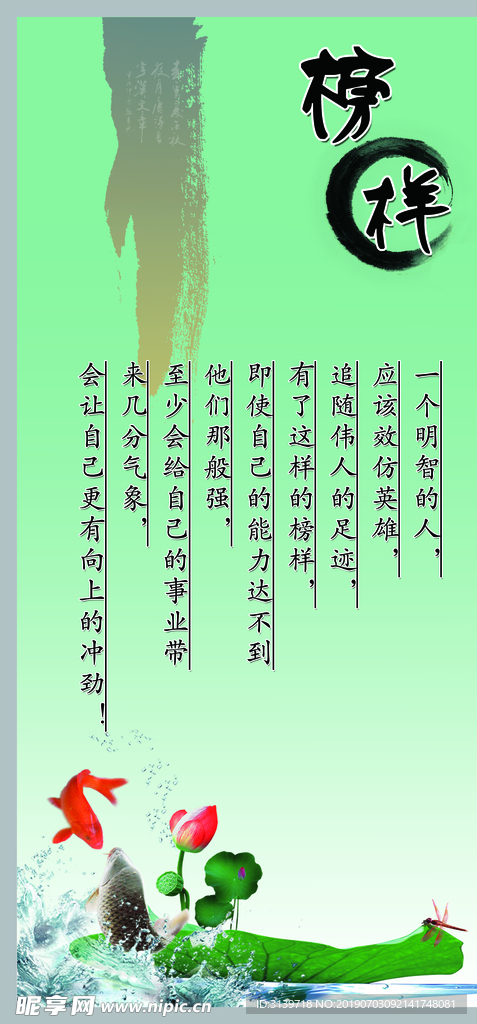 榜样
一个明智的人，
应该效仿英雄，
追随伟人的足迹，
有了这样的榜样，
即使自己的能力达不到
他们那般强，
至少会给自己的事业带
来几分气象，
会让自己更有向上的冲劲！
昵享网 www.nipic.cn
ID:3139718 NO:20190703092141748081